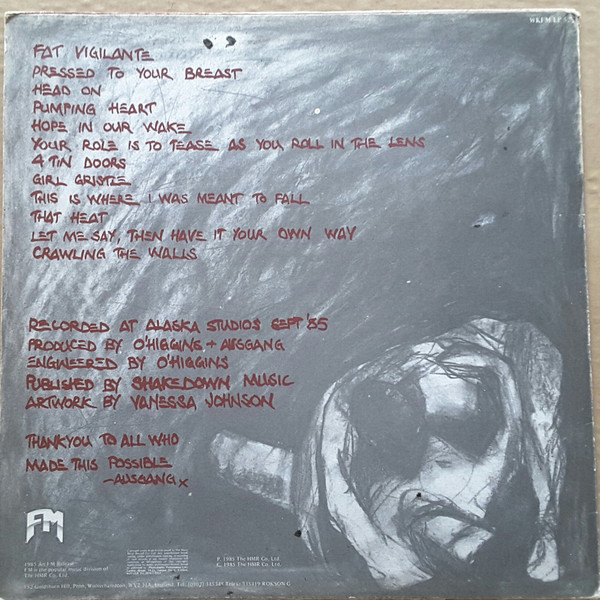 WKFM LP
FAT VIGILANTE
PRESSED TO YOUR BREAST
HEAD ON
PUMPING HEART
HOPE IN OUR WAKE
YOUR ROLE IS TO TEASE AS YOU ROLL IN THE LENS
4 TIN DOORS
GIRL GRISTLE
THIS IS WHERE I WAS MEANT TO FALL
THAT HEAT
LET ME SAY, THEN HAVE IT YOUR OWN WAY
CRAWLING THE WALLS
RECORDED AT ALASKA STUDIOS SEPT '85
PRODUCED BY O'HIGGINS + AUSGANG
ENGINEERED BY O'HIGGINS
PUBLISHED BY SHAKEDOWN MUSIC
ARTWORK BY VANESSA JOHNSON
THANKYOU TO ALL WHO
MADE THIS POSSIBLE
-AUSGANG x
FM
FM is the division of
The HMR Co. Ltd.
P. 1985 The HMR Co. Ltd.
C. 1985 The HMR Co. Ltd.
Hill, Penn, Wolverhampton, WV2 England. Tel: Telex: 335419 ROKSON G